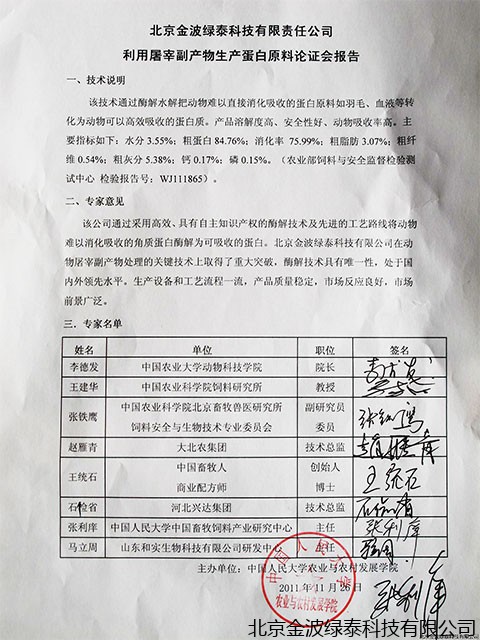 北京金波绿泰科技有限责任公司
利用屠宰副产物生产蛋白原料论证会报告
一、技术说明
该技术通过酶解水解把动物难以直接消化吸收的蛋白原料如羽毛、血液等转
化为动物可以高效吸收的蛋白质。产品溶解度高、安全性好、动物吸收率高。主
要指标如下：水分 3.55%；粗蛋白 84.76%；消化率 75.99%；粗脂肪 3.07%；粗纤
维 0.54%；粗灰分 5.38%；钙 0.17%；磷 0.15%。（农业部饲料与安全监督检验测
试中心 检验报告号：WJ111865）。
二、专家意见
该公司通过采用高效、具有自主知识产权的酶解技术及先进的工艺路线将动物
难以消化吸收的角质蛋白酶解为可吸收的蛋白。北京金波绿泰科技有限公司在动
物屠宰副产物处理的关键技术上取得了重大突破，酶解技术具有唯一性，处于国
内外领先水平。生产设备和工艺流程一流，产品质量稳定，市场反应良好，市场
前景广泛。
三、专家名单
姓名 单位 职位 签名
李德发 中国农业大学动物科技学院 院长 李德发
王建华 中国农业科学院饲料研究所 教授
张铁鹰 中国农业科学院北京畜牧兽医研究所 副研究员 张铁鹰
饲料安全与生物技术专业委员会 委员
赵雁青 大北农集团 技术总监 赵雁青
王统石 中国畜牧人 创始人 王统石
商业配方师 博士
石检省 河北兴达集团 技术总监
张利庠 中国人民大学中国畜牧饲料产业研究中心 主任 张利庠
马立周 山东和实生物科技有限公司研发中心 主任
主办单位：中国人民大学农业与农村发展学院
2011 年 11 月 26 日
张利庠
中国人民大学
农业与农村发展学院
北京金波绿泰科技有限公司